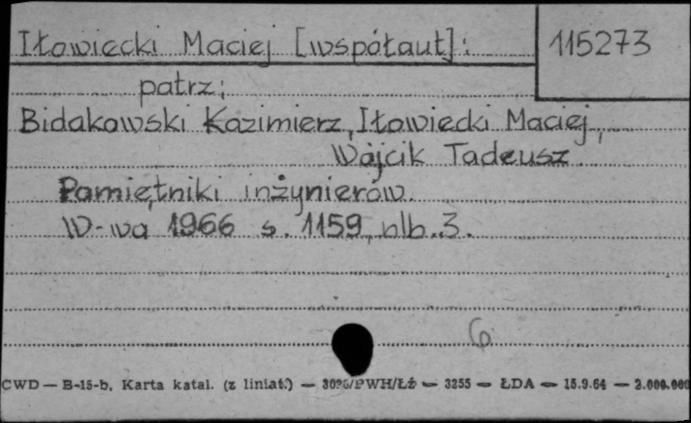 Iłowiecki Maciej [współaut]:
115273
patrz:
Bidakowski Kazimierz, Iłowiecki Maciej,
Wójcik Tadeusz
Pamiętniki inżynierów.
W-wa 1966 s. 1159, nlb. 3.
6
CWD — B-15-b. Karta katal. (z liniat.) — 3096/PWH/Łź — 3255 — ŁDA — 15.9.64 — 2.000.000